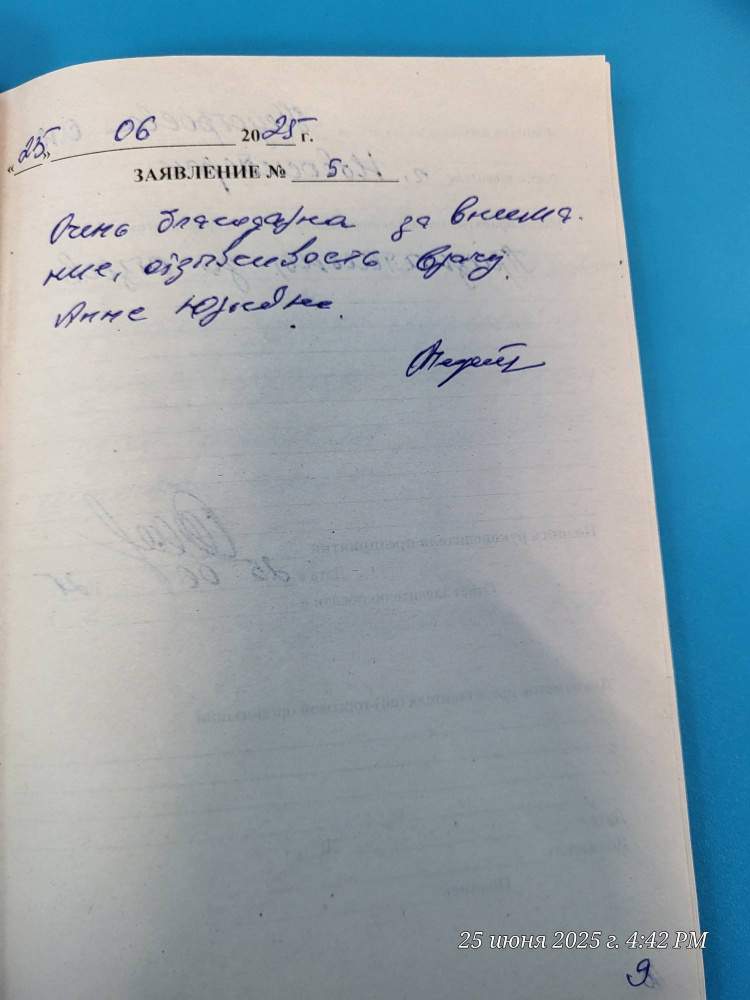 «25» 06 2025 г.
ЗАЯВЛЕНИЕ № 5
Очень благодарна за внима-
ние, отзывчивость врачу
Анне Юрьевне.
25 июня 2025 г. 4:42 PM
9